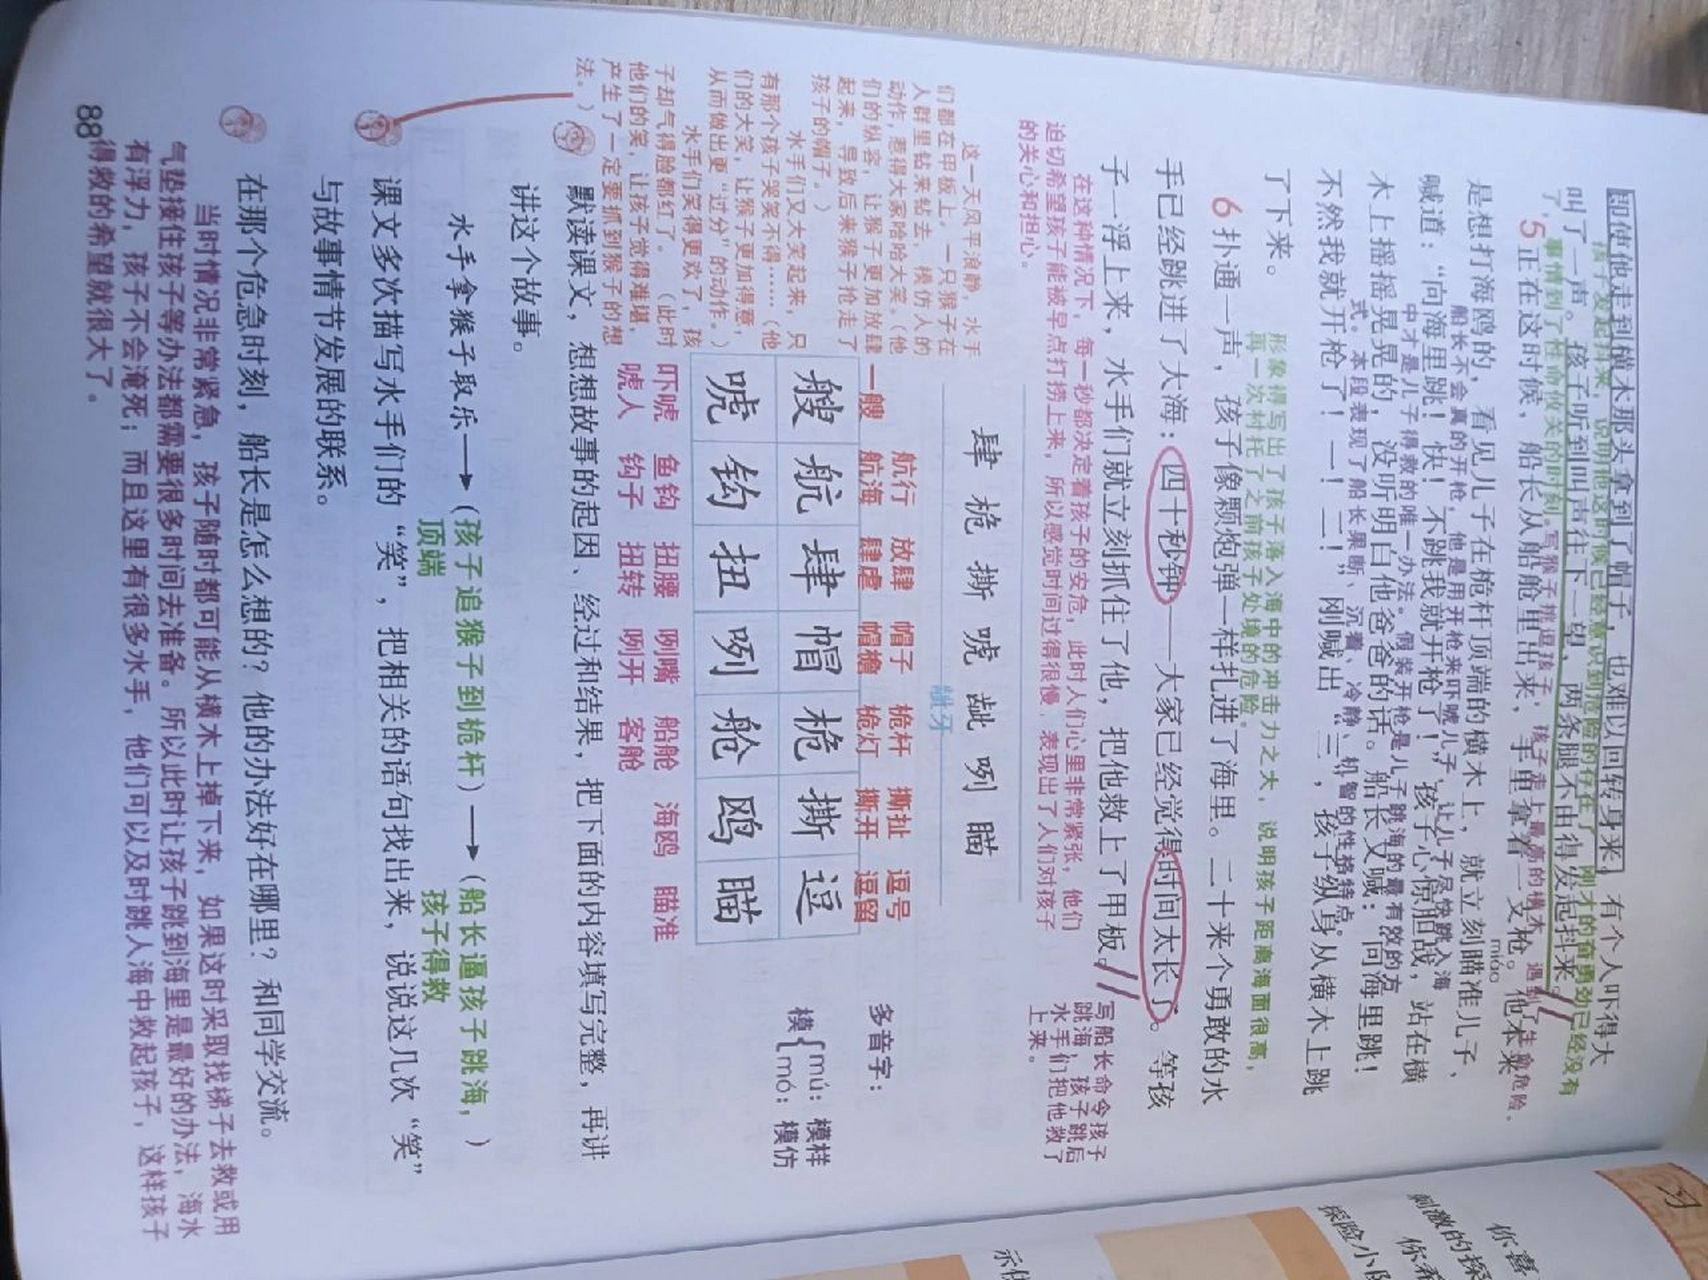 即使他走到横木那头拿到了帽子，也难以回转身来。有个人吓得大
孩子发起抖来，说明他这时候已经意识到危险的存在了，刚才的奋勇劲已经没有
叫了一声。孩子听到叫声往下一望，两条腿不由得发起抖来。
了。
5 正在这时候，船长从船舱里出来，手里拿着一支枪。他本来
是想打海鸥的，看见儿子在桅杆顶端的横木上，就立刻瞄准儿子，
miáo
船长不会真的开枪，他是用开枪来吓唬儿子，让儿子尽快跳入海
喊道：“向海里跳！快！不跳我就开枪了！”孩子心惊胆战，站在横
中才是儿子得救的唯一办法。假装开枪是儿子跳海的最有效的方
木上摇摇晃晃的，没听明白他爸爸的话。船长又喊：“向海里跳！
式。本段表现了船长果断、沉着、冷静、机智的性格特点。
不然我就开枪了！一！二！”刚喊出“三”，孩子纵身从横木上跳
了下来。
形象得写出了孩子落入海中的冲击力之大，说明孩子距离海面很高，
再一次衬托了之前孩子处境的危险。
6 扑通一声，孩子像颗炮弹一样扎进了海里。二十来个勇敢的水
手已经跳进了大海：四十秒钟——大家已经觉得时间太长了。等孩
子一浮上来，水手们就立刻抓住了他，把他救上了甲板。
写船长命令孩子
跳海，孩子跳后
水手们把他救了
上来。
在这种情况下，每一秒都决定着孩子的安危，此时人们心里非常紧张，他们
迫切希望孩子能被早点打捞上来，所以感觉时间过得很慢，表现出了人们对孩子
的关心和担心。
肆 桅 撕 唬 龇 咧 瞄
龇牙
航行 放肆 帽子 桅杆 撕扯 逗号
一艘 航海 肆虐 帽檐 桅灯 撕开 逗留
艘 航 肆 帽 桅 撕 逗
唬 钩 扭 咧 舱 鸥 瞄
吓唬 鱼钩 扭腰 咧嘴 船舱 海鸥 瞄准
唬人 钩子 扭转 咧开 客舱
多音字：
模{mú：模样
mó：模仿
这一天风平浪静，水手
们都在甲板上。一只猴子在
人群里钻来钻去，模仿人的
动作，惹得大家哈哈大笑。（他
们的纵容，让猴子更加放肆
起来，导致后来猴子抢走了
孩子的帽子。）
水手们又大笑起来，只
有那个孩子哭笑不得……（他
们的大笑，让猴子更加得意，
从而做出更“过分”的动作。）
水手们笑得更欢了，孩
子却气得脸都红了。（此时
他们的笑，让孩子觉得难堪，
产生了一定要抓到猴子的想
法。）
默读课文，想想故事的起因、经过和结果，把下面的内容填写完整，再讲
讲这个故事。
水手拿猴子取乐→（孩子追猴子到桅杆）→（船长逼孩子跳海，）
顶端 孩子得救
课文多次描写水手们的“笑”，把相关的语句找出来，说说这几次“笑”
与故事情节发展的联系。
在那个危急时刻，船长是怎么想的？他的办法好在哪里？和同学交流。
当时情况非常紧急，孩子随时都可能从横木上掉下来，如果这时采取找梯子去救或用
气垫接住孩子等办法都需要很多时间去准备。所以此时让孩子跳到海里是最好的办法，海水
有浮力，孩子不会淹死；而且这里有很多水手，他们可以及时跳入海中救起孩子，这样孩子
得救的希望就很大了。
88
习
你喜
刺激的探
你希
探险小队
示